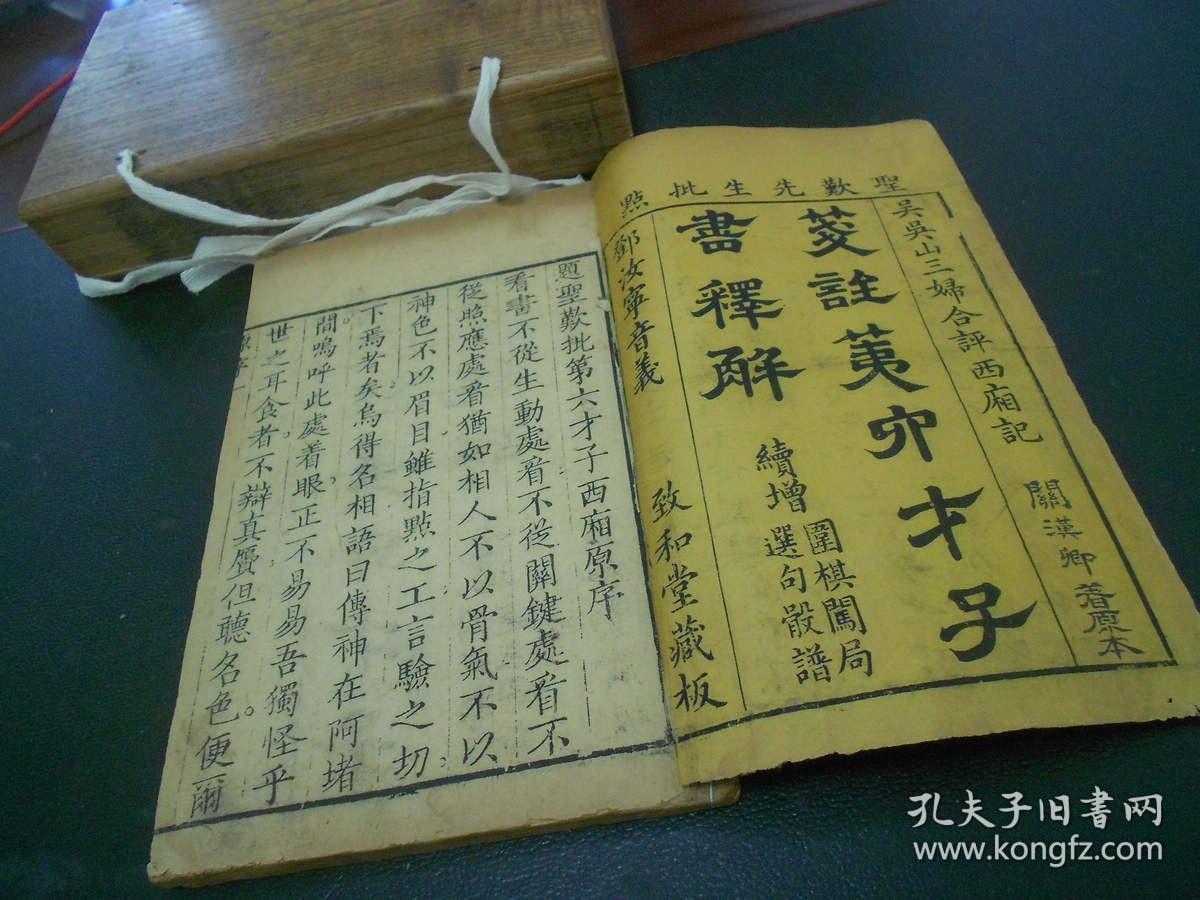 聖歎先生批點
吳吳山三婦合評西廂記
關漢卿著原本
箋註第六才子
書釋解
續增
圍棋闖局
選句骰譜
鄧汝寧音義
致和堂藏板
題聖歎批第六才子西廂原序
看書不從生動處看不從關鍵處看不
從照應處看猶如相人不以骨氣不以
神色不以眉目雖指點之工言驗之切
下焉者矣烏得名相語曰傳神在阿堵
間嗚呼此處着眼正不易易吾獨怪乎
世之耳食者不辯真贗但聽名色便爾
孔夫子旧书网
www.kongfz.com